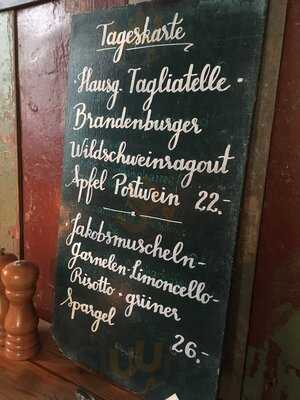 Tageskarte
·Hausg. Tagliatelle·
Brandenburger
Wildschweinragout
Apfel Portwein 22.-
·Jakobsmuscheln-
Garnelen-Limoncello-
Risotto · grüner
Spargel
26.-